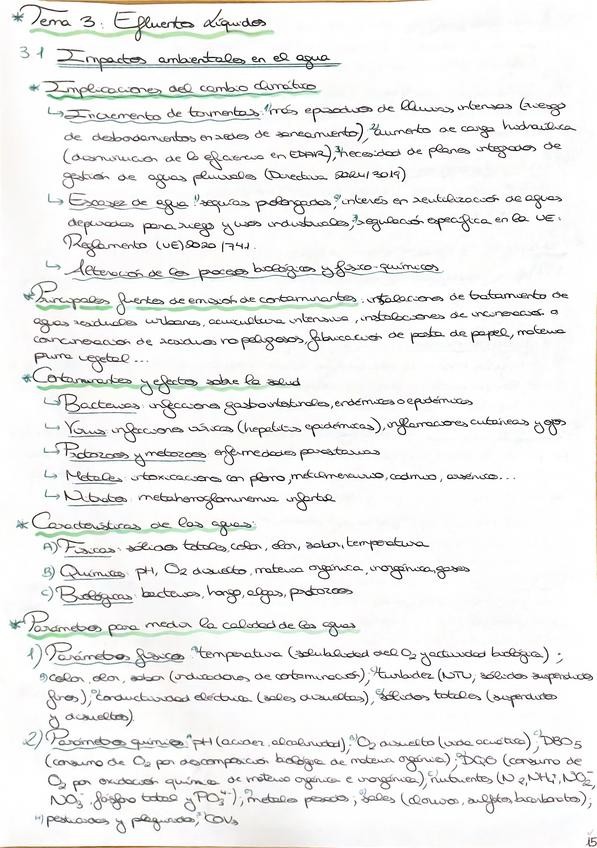 * Tema 3: Efluentes Líquidos
3.1 Impactos ambientales en el agua
* Implicaciones del cambio climático
↳ Incremento de tormentas: ¹más episodios de lluvias intensas (riesgo
de desbordamientos en redes de saneamiento), ²aumento de carga hidráulica
(disminución de la eficiencia en EDAR), ³necesidad de planes integrados de
gestión de aguas pluviales (Directiva 2024/3019)
↳ Escasez de agua: ¹sequías prolongadas, ²interés en reutilización de aguas
depuradas para riego y usos industriales, ³regulación específica en la UE:
Reglamento (UE) 2020/741.
↳ Alteración de los procesos biológicos y físico-químicos
* Principales fuentes de emisión de contaminantes: instalaciones de tratamiento de
aguas residuales urbanas, acuicultura intensiva, instalaciones de incineración o
coincineración de residuos no peligrosos, fabricación de pasta de papel, materia
prima vegetal...
* Contaminantes y efectos sobre la salud
↳ Bacterias: infecciones gastrointestinales, endémicas o epidémicas
↳ Virus: infecciones víricas (hepatitis epidémicas), inflamaciones cutáneas y ojos
↳ Protozoos y metozoos: enfermedades parasitarias
↳ Metales: intoxicaciones con plomo, metilmercurio, cadmio, arsénico...
↳ Nitratos: metahemoglobinemia infantil
* Características de las aguas:
A) Físicas: sólidos totales, color, olor, sabor, temperatura
B) Químicas: pH, O2 disuelto, materia orgánica, inorgánica, gases
C) Biológicas: bacterias, hongo, algas, protozoos
* Parámetros para medir la calidad de las aguas
1) Parámetros físicos: temperatura (solubilidad del O2 y actividad biológica);
color, olor, sabor (indicadores de contaminación); turbidez (NTU, sólidos suspendidos
finos); conductividad eléctrica (sales disueltas); sólidos totales (suspendidos
y disueltos).
2) Parámetros químicos: pH (acidez, alcalinidad); O2 disuelto (vida acuática); DBO5
(consumo de O2 por descomposición biológica de materia orgánica); DQO (consumo de
O2 por oxidación química de materia orgánica e inorgánica); nutrientes (N2, NH4⁺, NO2⁻,
NO3⁻, fósforo total y PO4³⁻); metales pesados; sales (cloruros, sulfatos, bicarbonatos);
pesticidas y plaguicidas; COVs
15